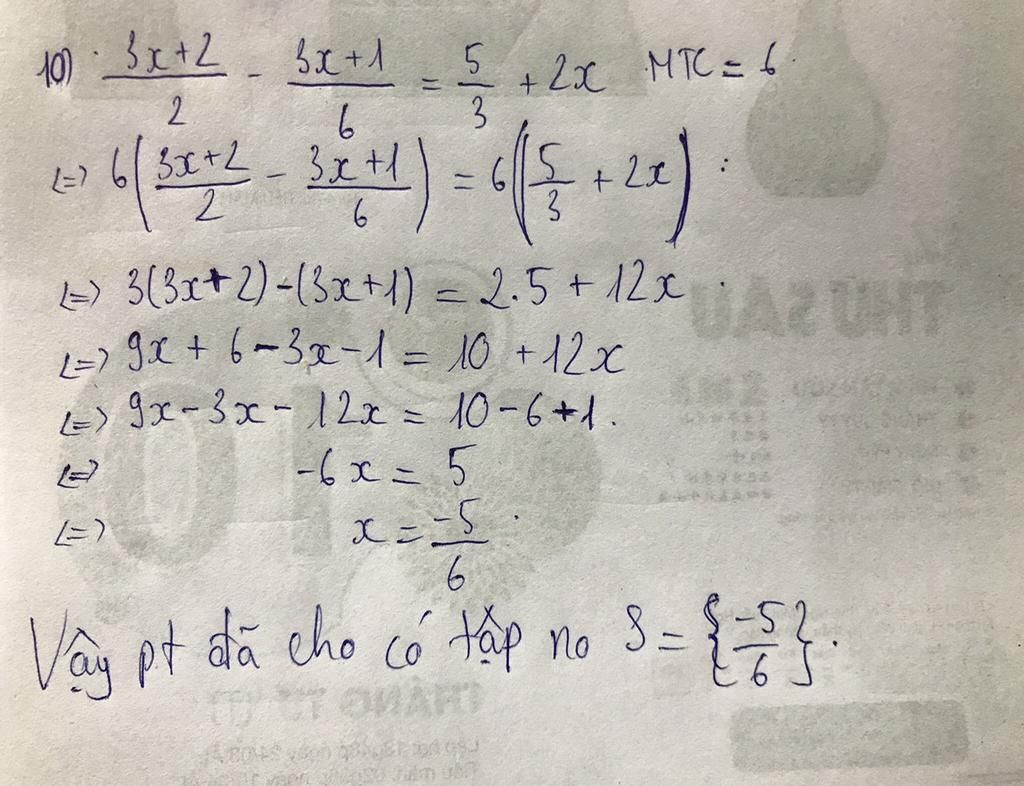 10) (3x+2)/2 - (3x+1)/6 = 5/3 + 2x MTC = 6
<=> 6((3x+2)/2 - (3x+1)/6) = 6(5/3 + 2x) :
<=> 3(3x+2)-(3x+1) = 2.5 + 12x .
<=> 9x + 6 - 3x - 1 = 10 + 12x
<=> 9x - 3x - 12x = 10 - 6 + 1.
<=> -6x = 5
<=> x = -5/6 .
Vậy pt đã cho có tập no S = {-5/6}.
THỨ SÁU
10
THÁNG TƯ (T)